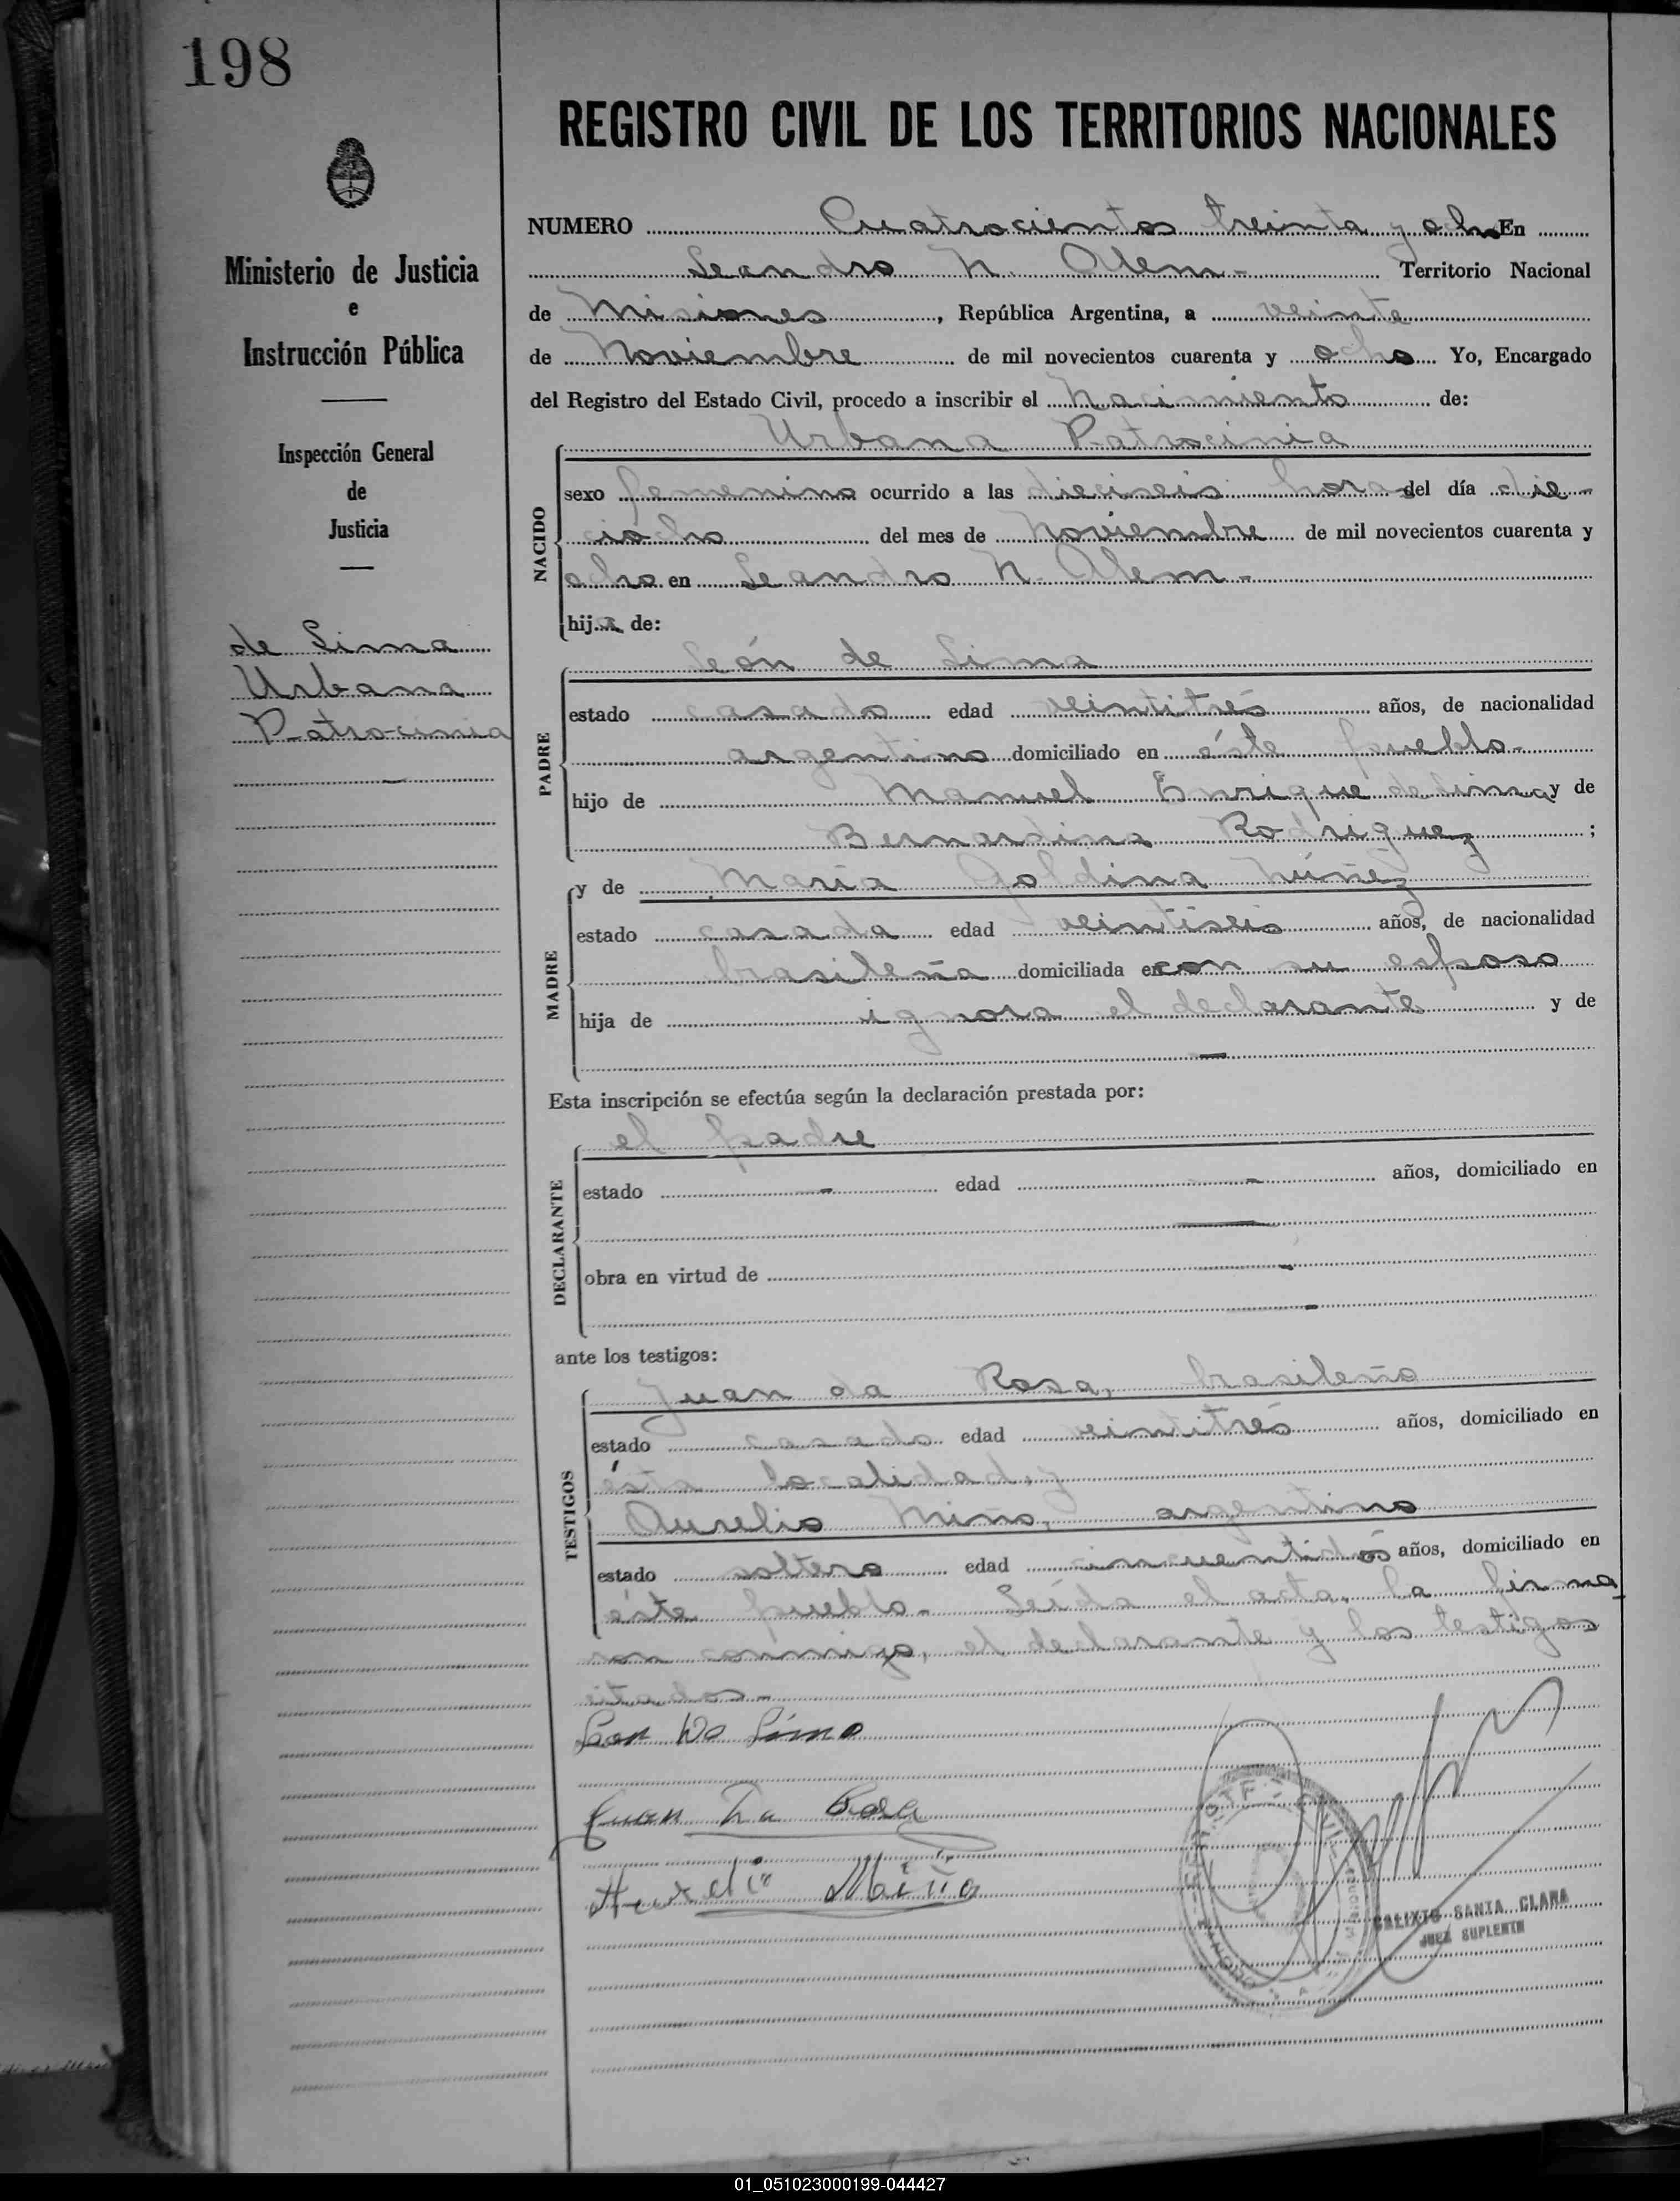 198
REGISTRO CIVIL DE LOS TERRITORIOS NACIONALES
Ministerio de Justicia
e
Instrucción Pública
Inspección General
de
Justicia
de Lima
Urbana
Patrocinia
NUMERO Cuatrocientos treinta y ocho En
Leandro N. Alem - Territorio Nacional
de Misiones, República Argentina, a veinte
de Noviembre de mil novecientos cuarenta y ocho Yo, Encargado
del Registro del Estado Civil, procedo a inscribir el Nacimiento de:
Urbana Patrocinia
NACIDO
sexo femenino ocurrido a las dieciseis horas del día die-
ciocho del mes de Noviembre de mil novecientos cuarenta y
ocho en Leandro N. Alem -
hija de:
PADRE
León de Lima
estado casado edad veintitrés años, de nacionalidad
argentino domiciliado en éste pueblo-
hijo de Manuel Enrique de Lima y de
Bernardina Rodriguez ;
MADRE
y de María Goldina Núñez
estado casada edad veintiseis años, de nacionalidad
brasileña domiciliada en con su esposo
hija de ignora el declarante y de
—
Esta inscripción se efectúa según la declaración prestada por:
DECLARANTE
el padre
estado - edad - años, domiciliado en
—
obra en virtud de -
-
ante los testigos:
TESTIGOS
Juan da Rosa, brasileño
estado casado edad veintitrés años, domiciliado en
ésta localidad, y
Aurelio Miño, argentino
estado soltero edad cincuentidos años, domiciliado en
éste pueblo - Leída el acta, la firma-
ron conmigo, el declarante y los testigos
citados -
Leon De Lima
Juan Da Rosa
Aurelio Miño
CALIXTO SANTA CLARA
JUEZ SUPLENTE
01_051023000199-044427